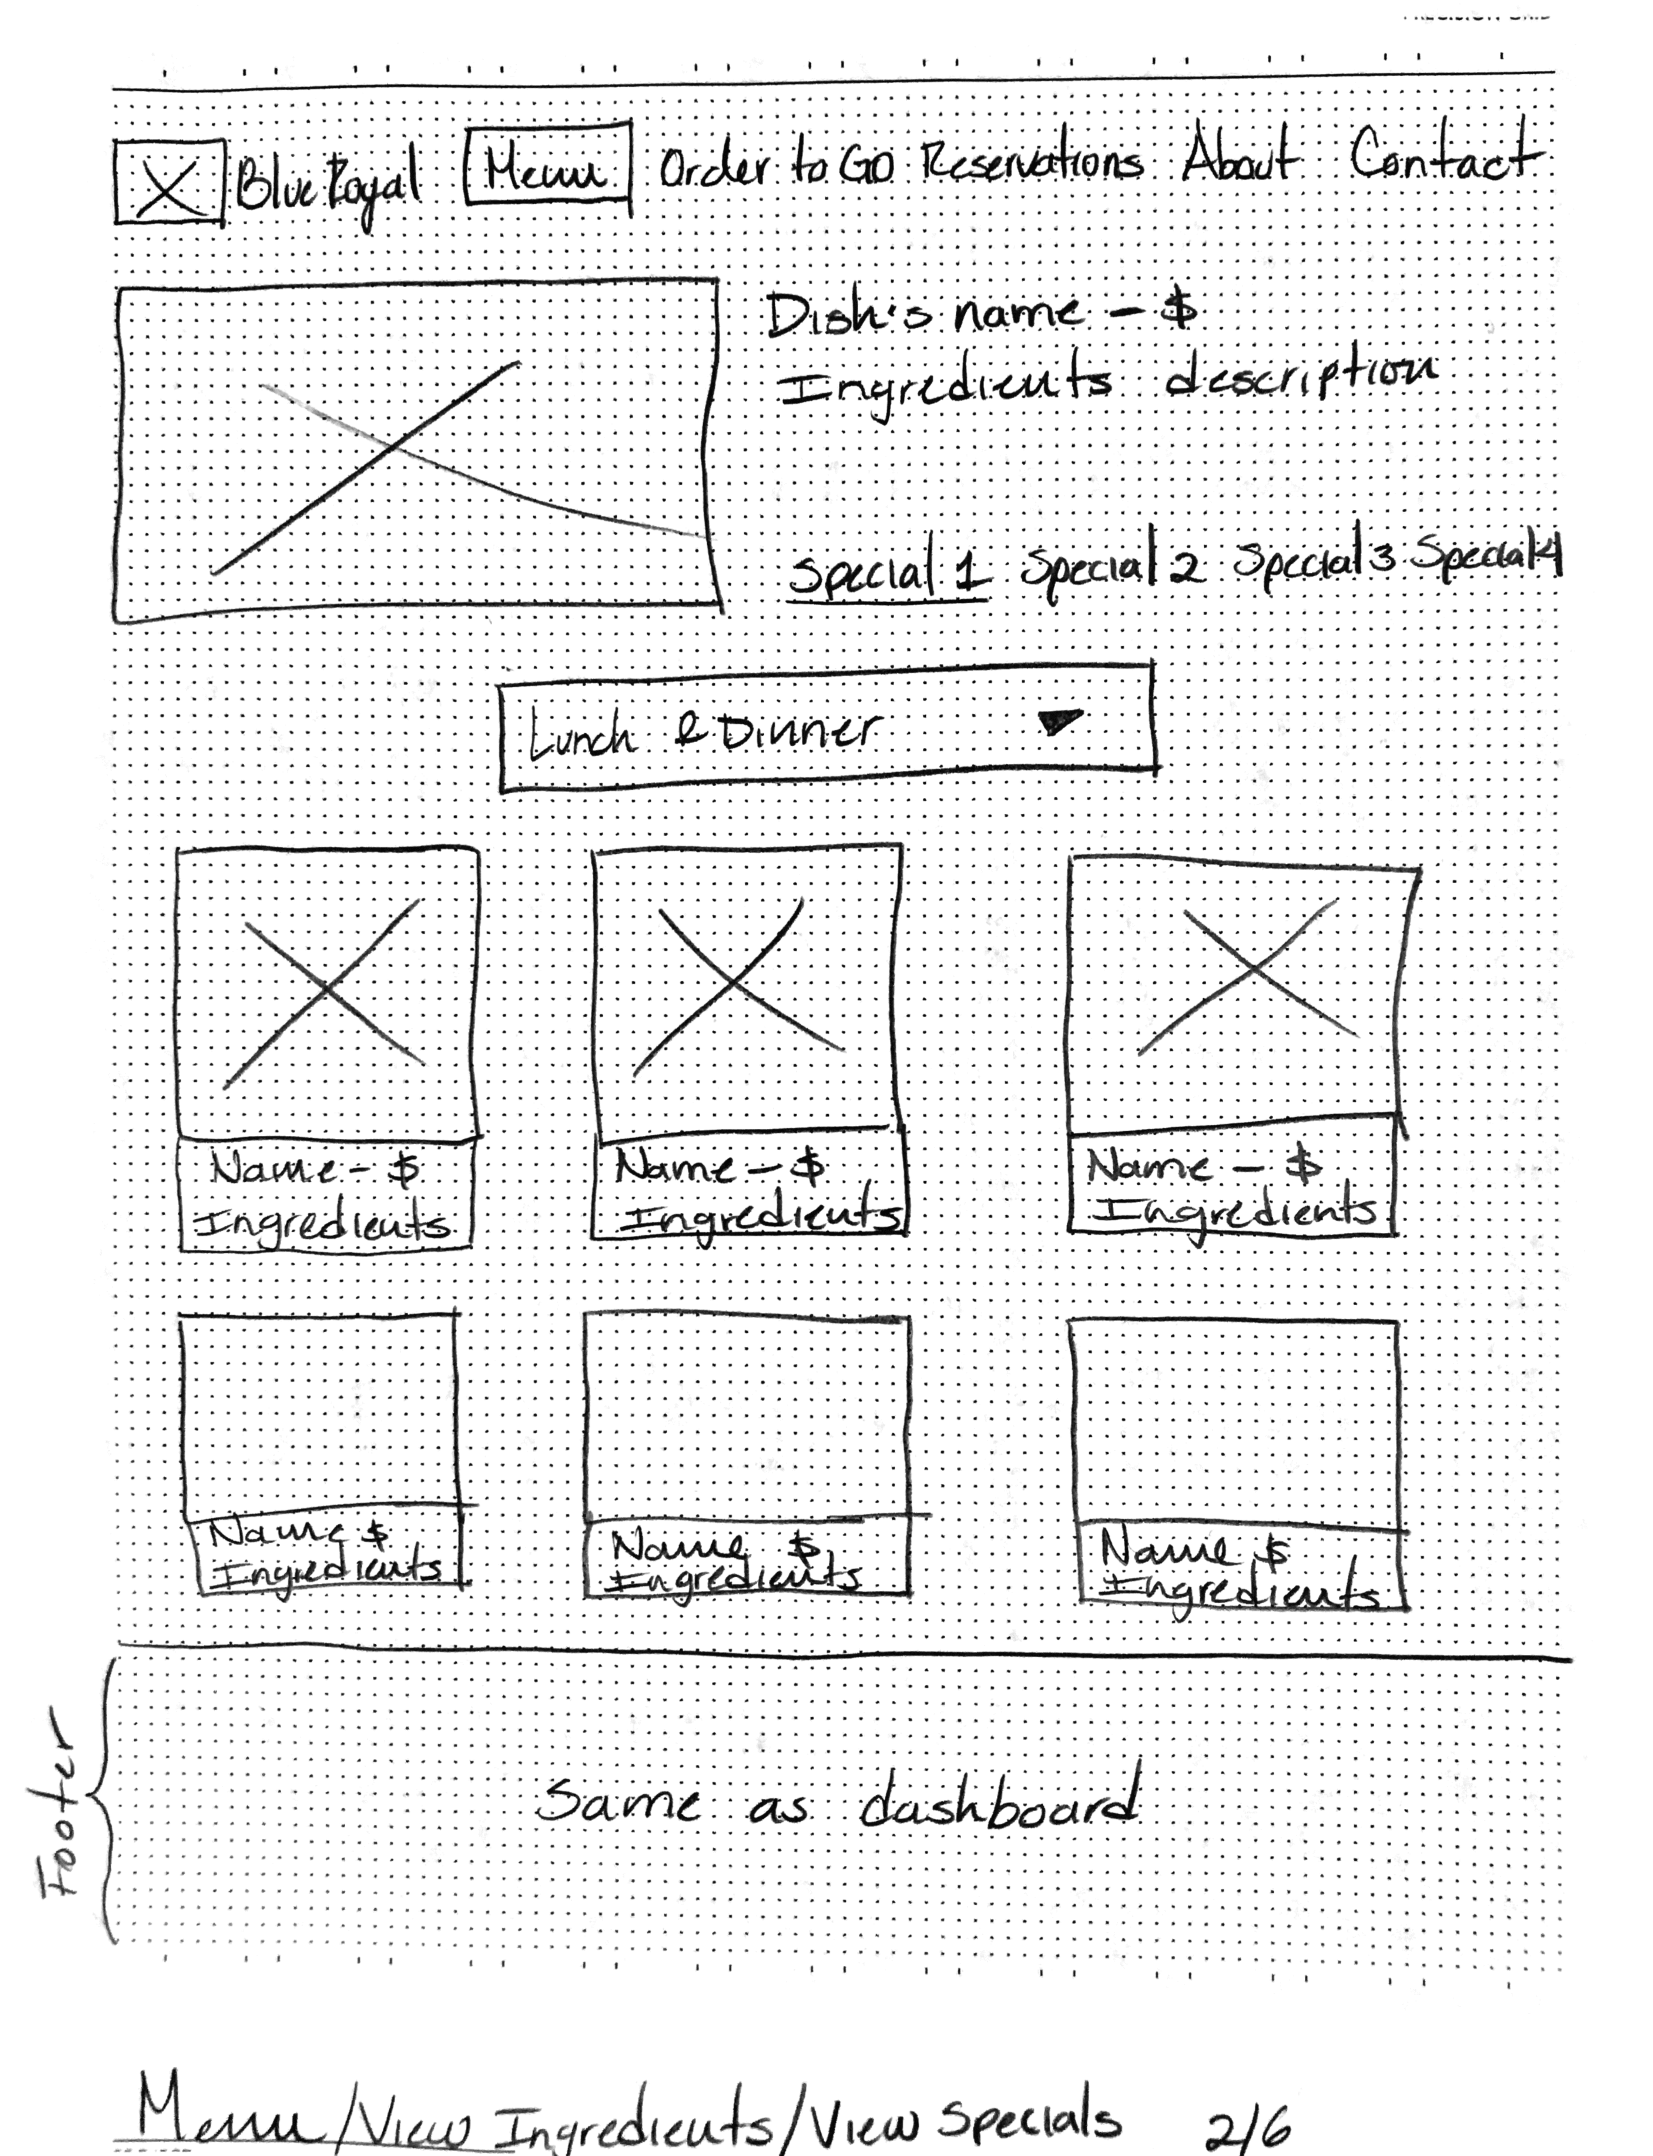 Blue Royal Menu Order to GO Reservations About Contact
Dish's name - $
Ingredients description
Special 1 Special 2 Special 3 Special 4
Lunch & Dinner
Name - $ Name - $ Name - $
Ingredients Ingredients Ingredients
Name $ Name $ Name $
Ingredients Ingredients Ingredients
Footer
Same as dashboard
Menu/View Ingredients/View Specials 2/6